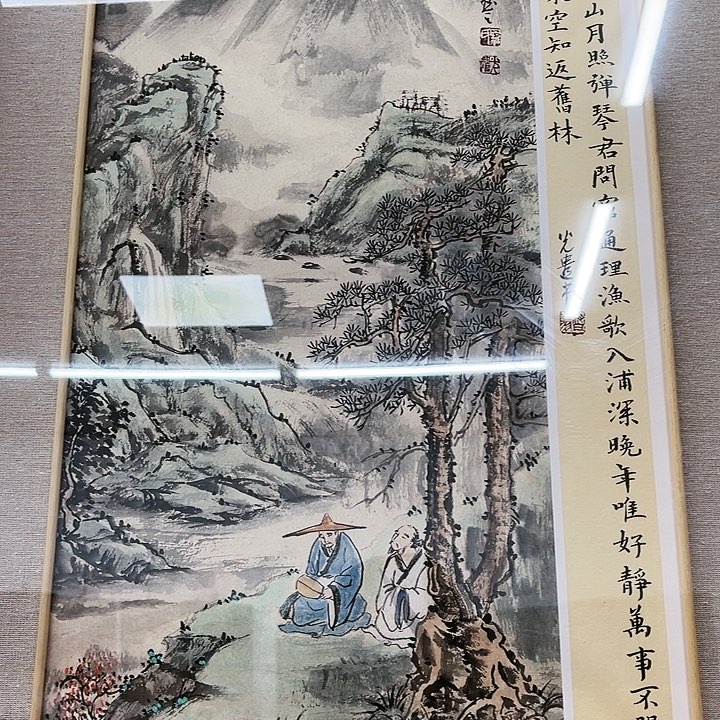 山月照彈琴君問窮通理漁歌入浦深晚年唯好靜萬事不
空知返舊林